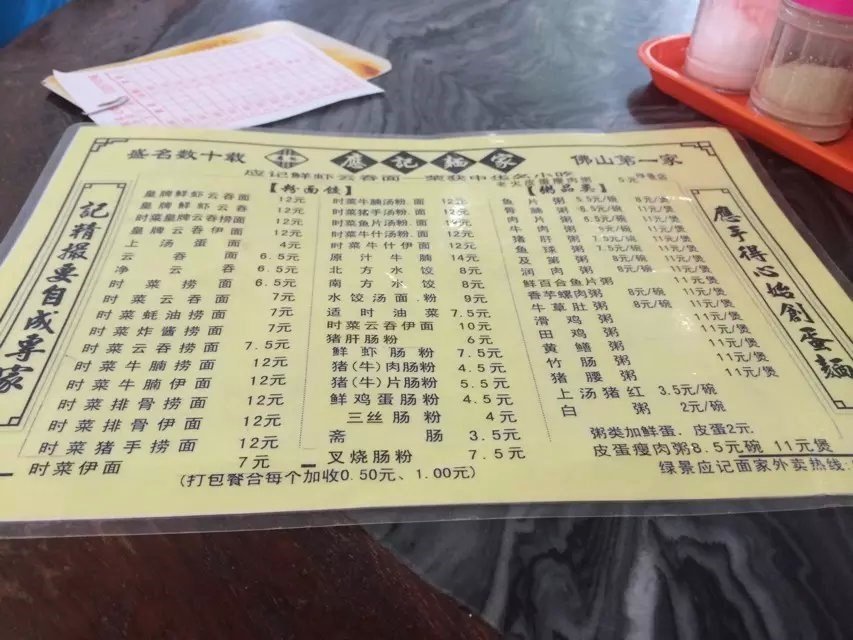 盛名数十载
應記麵家
佛山第一家
应记鲜虾云吞面
【粉面饺】
皇牌鲜虾云吞面 12元
皇牌鲜虾云吞捞面 12元
时菜皇牌云吞捞面 12元
皇牌云吞伊面 12元
上汤蛋面 4元
云吞面 6.5元
净云吞 6.5元
时菜捞面 6.5元
时菜云吞面 7元
时菜蚝油捞面 7元
时菜炸酱捞面 7元
时菜云吞捞面 7.5元
时菜牛腩捞面 12元
时菜牛腩伊面 12元
时菜排骨捞面 12元
时菜排骨伊面 12元
时菜猪手捞面 12元
时菜伊面 7元
时菜牛腩汤粉.面 12元
时菜猪手汤粉.面 12元
时菜鱼片汤粉.面
时菜牛什汤粉.面 12元
时菜牛什伊面 12元
原汁牛腩 14元
北方水饺 8元
南方水饺 8元
水饺汤面.粉 9元
适时油菜 7.5元
时菜云吞伊面 10元
猪肝肠粉 6元
鲜虾肠粉 7.5元
猪(牛)肉肠粉 4.5元
猪(牛)片肠粉 5.5元
鲜鸡蛋肠粉 4.5元
三丝肠粉 4元
斋肠 3.5元
叉烧肠粉 7.5元
(打包餐合每个加收0.50元、1.00元)
【粥品类】
鱼片粥 5.5元/碗 8元/煲
骨腩粥 6.5元/碗 11元/煲
肉片粥 6.5元/碗 11元/煲
牛肉粥 11元/煲
猪肝粥 7.5元/碗 11元/煲
鱼球粥 7.5元/碗 11元/煲
及第粥 8元/碗 11元/煲
润肉粥 8元/碗 11元/煲
鲜百合鱼片粥 11元/煲
香芋螺肉粥 8元/碗 11元/煲
牛草肚粥 8元/碗 11元/煲
滑鸡粥 11元/煲
田鸡粥 11元/煲
黄鳝粥 11元/煲
竹肠粥 11元/煲
猪腰粥 11元/煲
上汤猪红 3.5元/碗
白粥 2元/碗
粥类加鲜蛋.皮蛋2元.
皮蛋瘦肉粥8.5元碗 11元煲
绿景应记面家外卖热线:
記精撮要自成專家
應手得心始創蛋麵